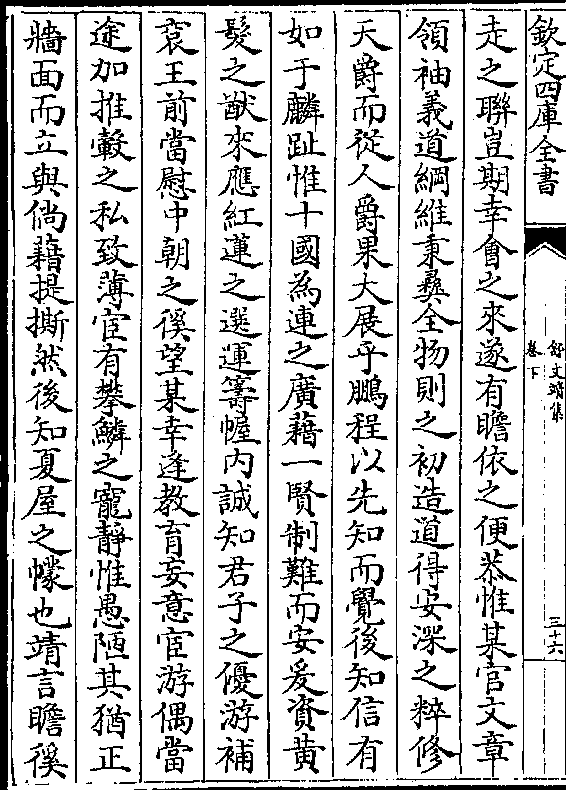 欽定四庫全書
舒文靖集
卷下
三十六
走之聯豈期幸會之來遂有瞻依之便恭惟某官文章
領袖義道綱維秉彞全物則之初造道得安深之粹修
天爵而從人爵果大展乎鵬程以先知而覺後知信有
如于麟趾惟十國為連之廣藉一賢制難而安爰資黄
髮之猷來應紅蓮之選運籌幄内誠知君子之優游補
衮王前當慰中朝之徯望某幸逢教育妄意宦游偶當
途加推轂之私致薄宦有攀鱗之寵靜惟愚陋其猶正
牆面而立與倘藉提撕然後知夏屋之幪也靖言瞻徯